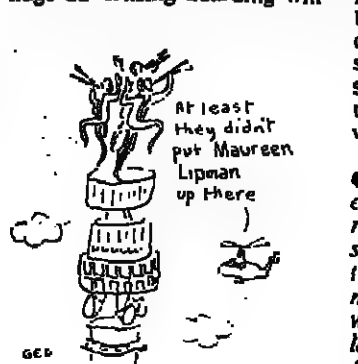 At least
they didn't
put Maureen
Lipman
up there
GED